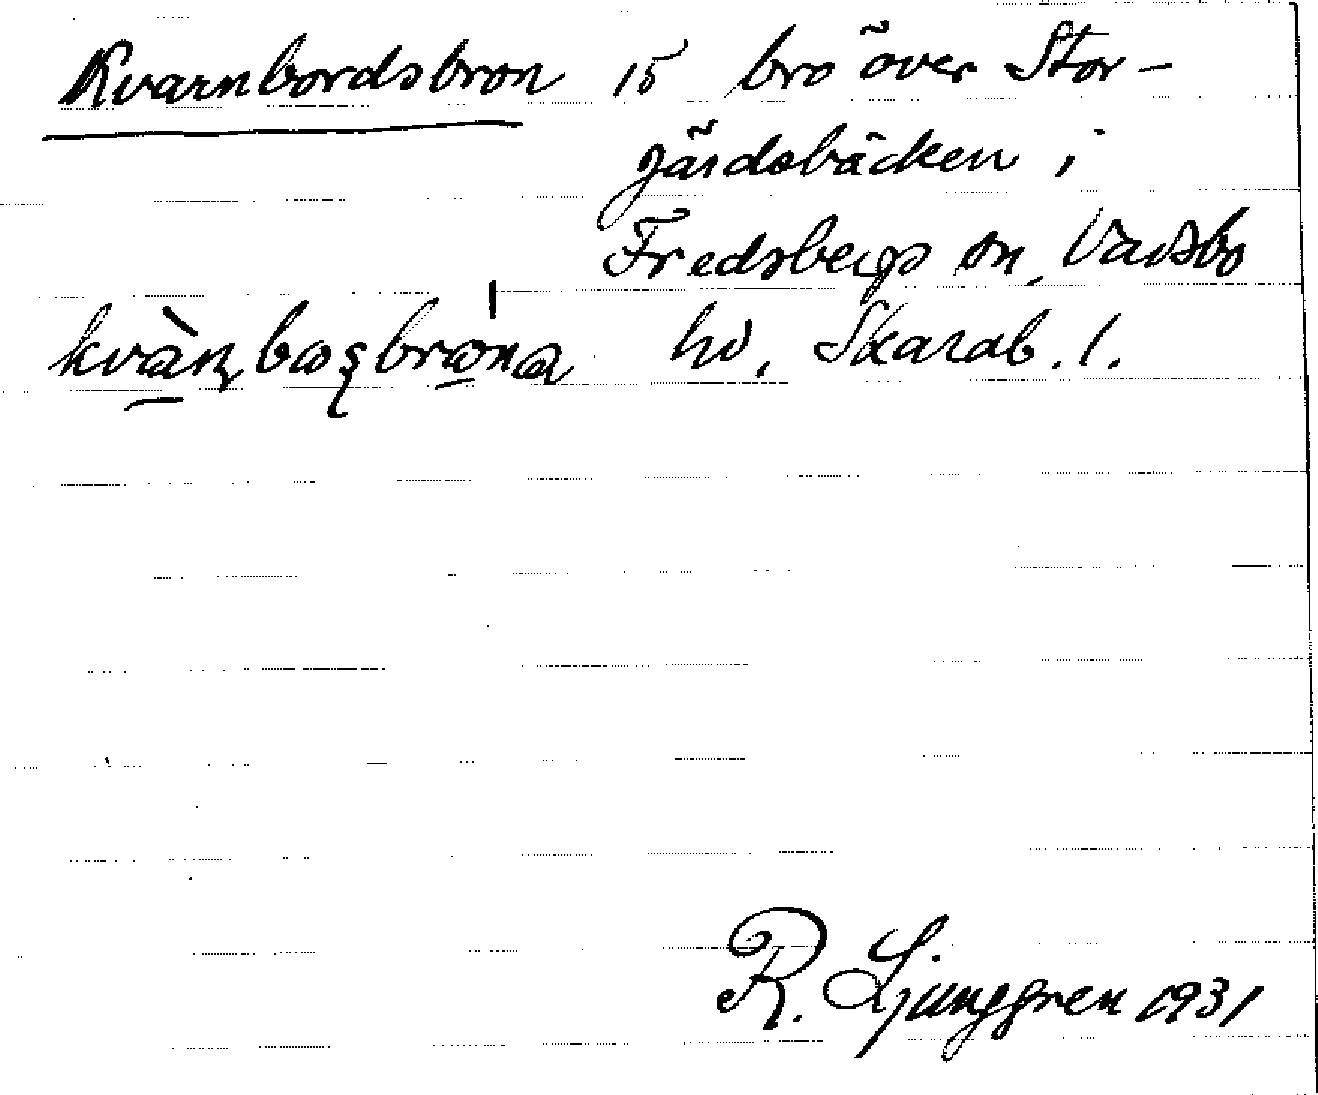 Kvarnbordsbron 15 bro över Stor-
gärdsbäcken i
Fredsbergs sn, Vadsbo
hd, Skarab. l.
R. Ljunggren 1931